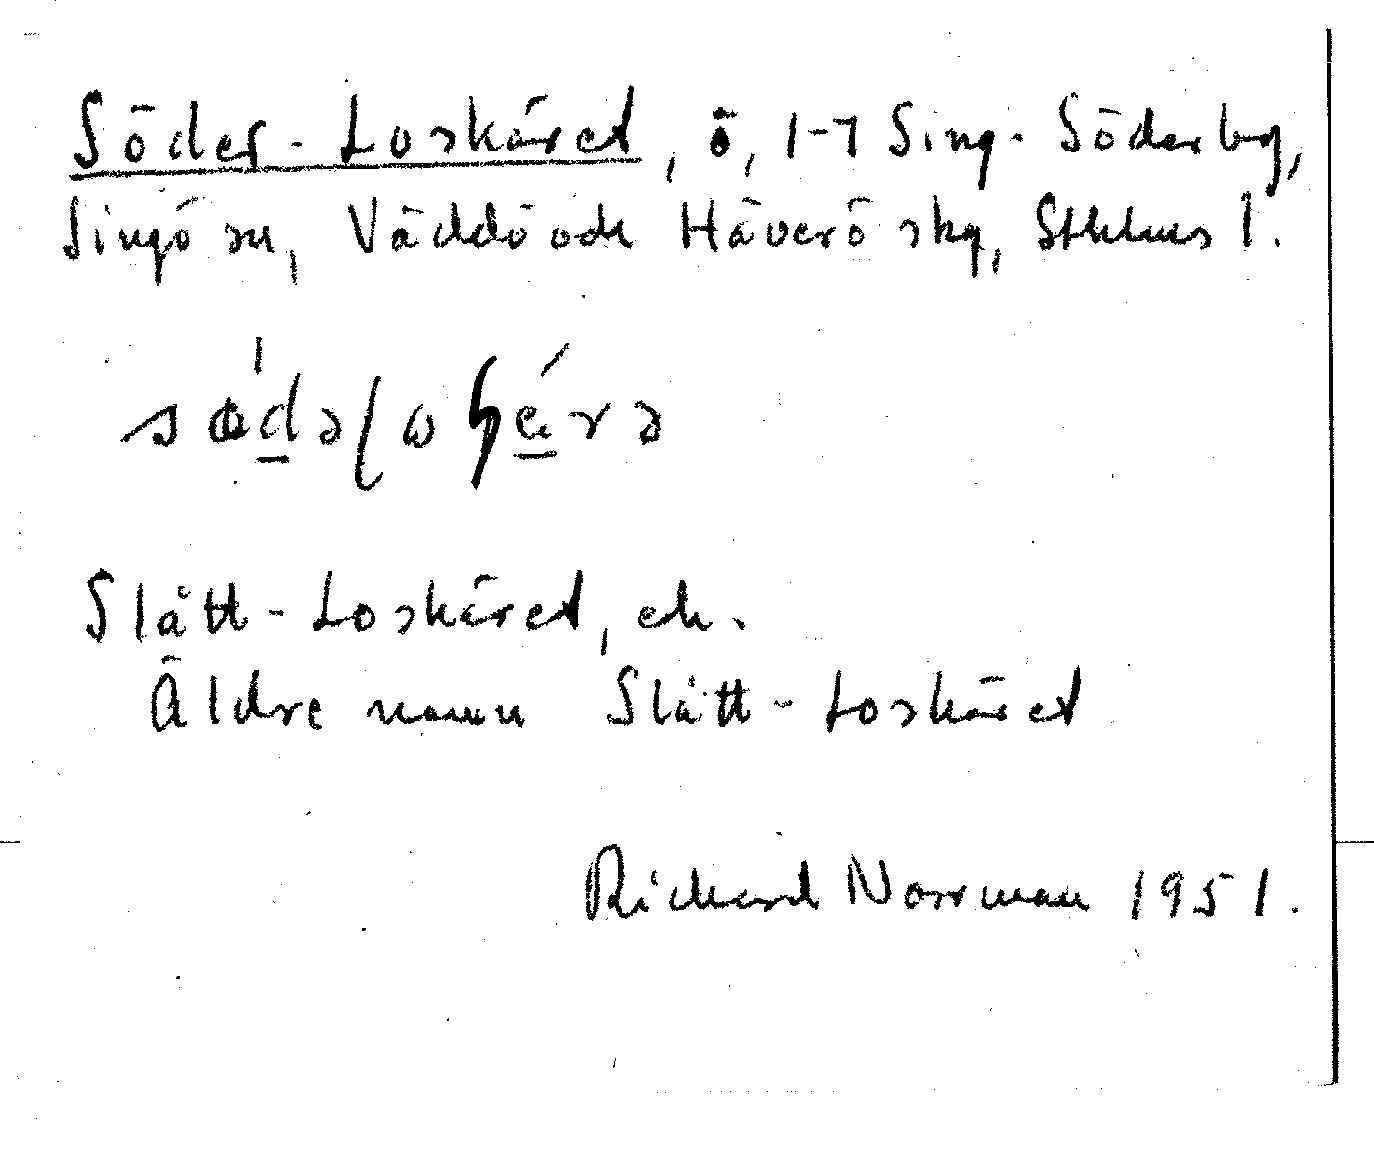 Söder-Loskäret, ö, 1-7 Sing-Söderby,
Singö sn, Väddö och Häverö skg, Sthlms l.
Slätt-Loskäret, ek.
Äldre namn Slätt-Loskäret
Richard Norrman 1951.